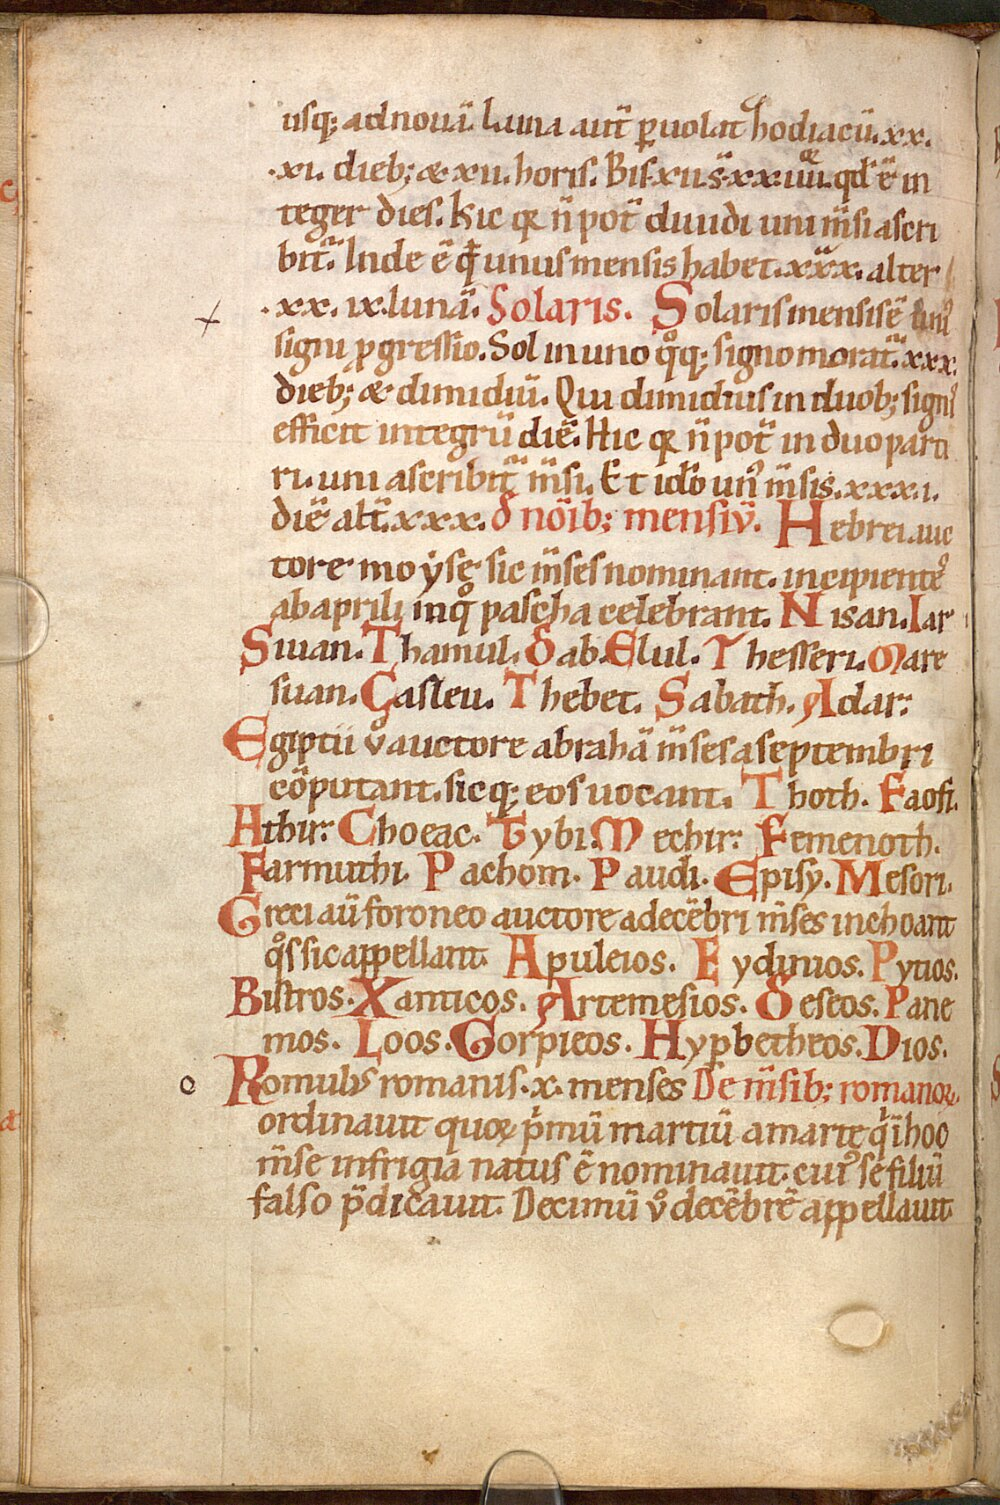 usq; ad nouā. Luna aut̄ ꝑuolat hodiacū. xx.
.xi. dieb; & xii. horis. Bis xii. s̄ xxiiii. qd̄ ē in
teger dies. hic qꝛ n̄ pot̄ diuidi uni m̄si ascri
bit̄. Inde ē qđ unus mensis habet .xxx. alter
.xx. ix. lunā. Solaris. Solaris mensis ē uniꝰ
signi ꝓgressio. Sol in uno qͦq; signo morat̄ .xxx.
dieb; & dimidiū. Qui dimidius in duob; signiſ
efficit integrū diē. Hic qꝛ n̄ pot̄ in duo parti
ri. uni ascribit̄ m̄si. Et id̄o unꝰ m̄sis .xxx.i.
diē alt̄ .xxx. d̄ nōib; mensiū. Hebrei auc
tore moyse sic m̄ses nominant. incipientes
ab aprili inqͦ pascha celebrant. Nisan. Iar
Siuan. Thamul. dab. Elul. Thesseri. Mare
suan. Casleu. Thebet. Sabath. Adar:
Egiptii uͦ auctore abrahā m̄ses a septembri
cōputant. sicq; eos uocant. Thoth. Faofi.
Athir: Choeac. Tybi. Mechir: Femenoth.
Farmuthi. Pachom. Paudi. Episy. Mesori.
Greci aū foroneo auctore a decēbri m̄ses inchoant
qͦs sic appellant. Apuleios. Eydinios. Pytios.
Bistros. Xanticos. Artemesios. deseos. Pane
mos. Loos. Gorpieos. Hyꝑbetheos. Dios.
Romulus romanis .x. menses De m̄sib; romanoꝝ.
ordinauit quoꝝ p̄mū martiū a marte q̄ i hoc
m̄se in frigia natus ē nominauit. cuiꝰ se filiū
falso p̄dicauit. Decimū uͦ decēbrē appellauit